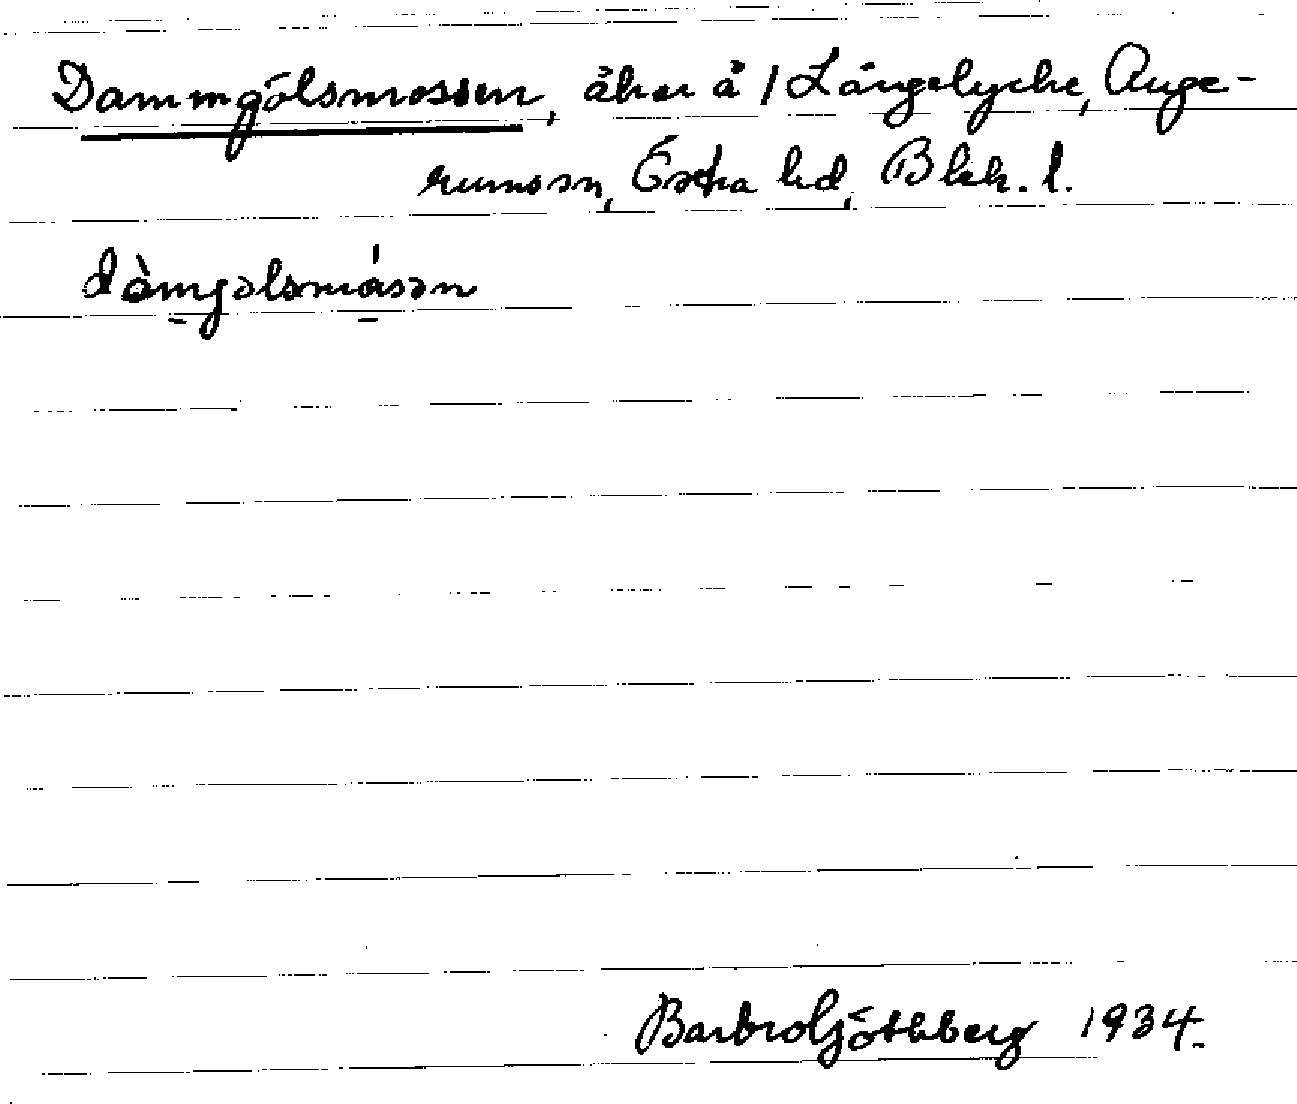 Dammgölsmossen, åker å 1 Långelycke, Auge-
rumssn, Östra hd, Blek. l.
dàmgəlsmásən
Barbro Göthberg 1934.